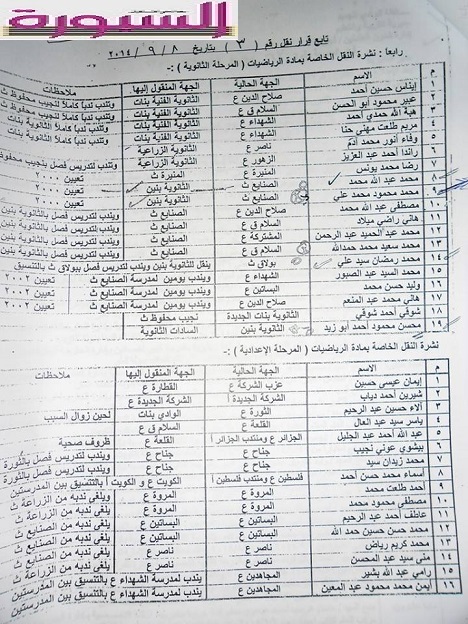 السبورة
تابع قرار نقل رقم ( ٣ ) بتاريخ ٨ / ٩ / ٢٠١٤
رابعا : نشرة النقل الخاصة بمادة الرياضيات ( المرحلة الثانوية ) :-
م الاسم الجهة الحالية الجهة المنقول إليها ملاحظات
١ إيناس حسين أحمد صلاح الدين ع الثانوية الفنية بنات وتنتدب ندبا كاملا لنجيب محفوظ ث
٢ عبير محمود أبو الحسن السلام ق ع الثانوية الفنية بنات
٣ هبة الله حمدي أحمد الشهداء ع الثانوية الفنية بنات
٤ مريم طلعت مهني حنا الشهداء ع الثانوية الفنية بنات
٥ وفاء أنور محمد آدم ناصر ع الثانوية الزراعية
٦ راندا أحمد عبد العزيز الزهور ع وتنتدب لتدريس فصل بنجيب محفوظ
٧ رضا محمد يونس المنيرة ع المنيرة ث تعيين ٢٠٠٠
٨ محمد عبد الله محمد الصنايع ث الثانوية بنين تعيين ٢٠٠٠
٩ محمد محمود محمد علي الصنايع ث الثانوية بنين
١٠ مصطفى عبد الله محمد صلاح الدين ع الصنايع ث ويندب لتدريس فصل بالثانوية بنين
١١ هاني راضي ميلاد السلام ق ع الصنايع ث
١٢ محمد عبد الحميد عبد الرحمن المشتركة ع الصنايع ث
١٣ محمد سعيد محمد حمدالله السلام ق ع الصنايع ث ويندب لتدريس فصل بالثانوية بنين
١٤ محمد رمضان سيد علي بولاق ث ينقل للثانوية بنين ويندب لتدريس فصل ببولاق ث بالتنسيق
١٥ محمد السيد عبد الصبور الشهداء ع ويندب يومين لمدرسة الصنايع ث تعيين ٢٠٠٢
١٦ وليد حسن محمد البساتين ع ويندب يومين لمدرسة الصنايع ث تعيين ٢٠٠٢
١٧ هاني محمد عبد المنعم صلاح الدين ع ويندب يومين لمدرسة الصنايع ث تعيين ٢٠٠٢
١٨ شوقي أحمد شوقي الثانوية بنات الجديدة نجيب محفوظ ث
١٩ محسن محمود أحمد أبو زيد الثانوية بنين السادات الثانوية
نشرة النقل الخاصة بمادة الرياضيات ( المرحلة الإعدادية ) :-
م الاسم الجهة الحالية الجهة المنقول إليها ملاحظات
١ إيمان عيسى حسين عزب الشركة ع القطارة ع
٢ شيرين أحمد دياب الشركة الجديدة أ الشركة الجديدة ع
٣ آلاء حسين عبد الرحيم الثورة ع الوادي بنات لحين زوال السبب
٤ ياسر سيد عبد العال القلعة ع السلام ق ع
٥ عبد الله أحمد عبد الجليل الجزائر ع ومنتدب الجزائر أ القلعة ع ظروف صحية
٦ بيشوي عوني نجيب جناح ع ويندب لتدريس فصل بالثورة
٧ محمد زيدان سيد جناح ع ويندب لتدريس فصل بالثورة
٨ أسماء محمد حسن أحمد فلسطين ع ومنتدب فلسطين أ الكويت ع و الكويت أ بالتنسيق بين المدرستين
٩ أحمد طلعت محمد المروة ع المروة ع ويلغى ندبه من الزراعة ث
١٠ مصطفى محمود محمد المروة ع المروة ع ويلغى ندبه من الصنايع ث
١١ عاطف أحمد عبد الرحيم البساتين ع البساتين ع ويلغى ندبه من الصنايع ث
١٢ محمد حسن حسين حمد البساتين ع البساتين ع ويلغى ندبه من الصنايع ث
١٣ محمد كريم رياض ناصر ع ناصر ع
١٤ منى سيد عبد المحسن ناصر ع ناصر ع
١٥ رامي عبد الله بشير المجاهدين ع يندب لمدرسة الشهداء ع بالتنسيق بين المدرستين
١٦ أيمن محمد محمود عبد المعين المجاهدين ع يندب لمدرسة الشهداء ع بالتنسيق بين المدرستين